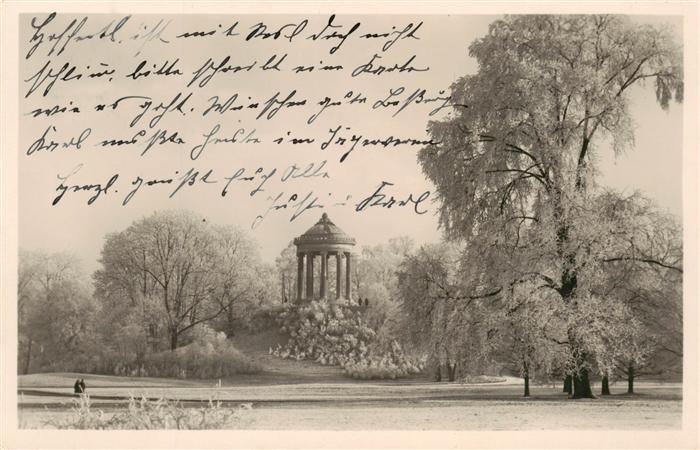 Hoffentl. ist mit Resl doch nicht
schlim, bitte schreibt eine Karte
wie es geht. Wünschen gute Beßrug
Karl mußte heute im Jägerverein
Herzl. grüßt Euch Alle
Justi u Karl